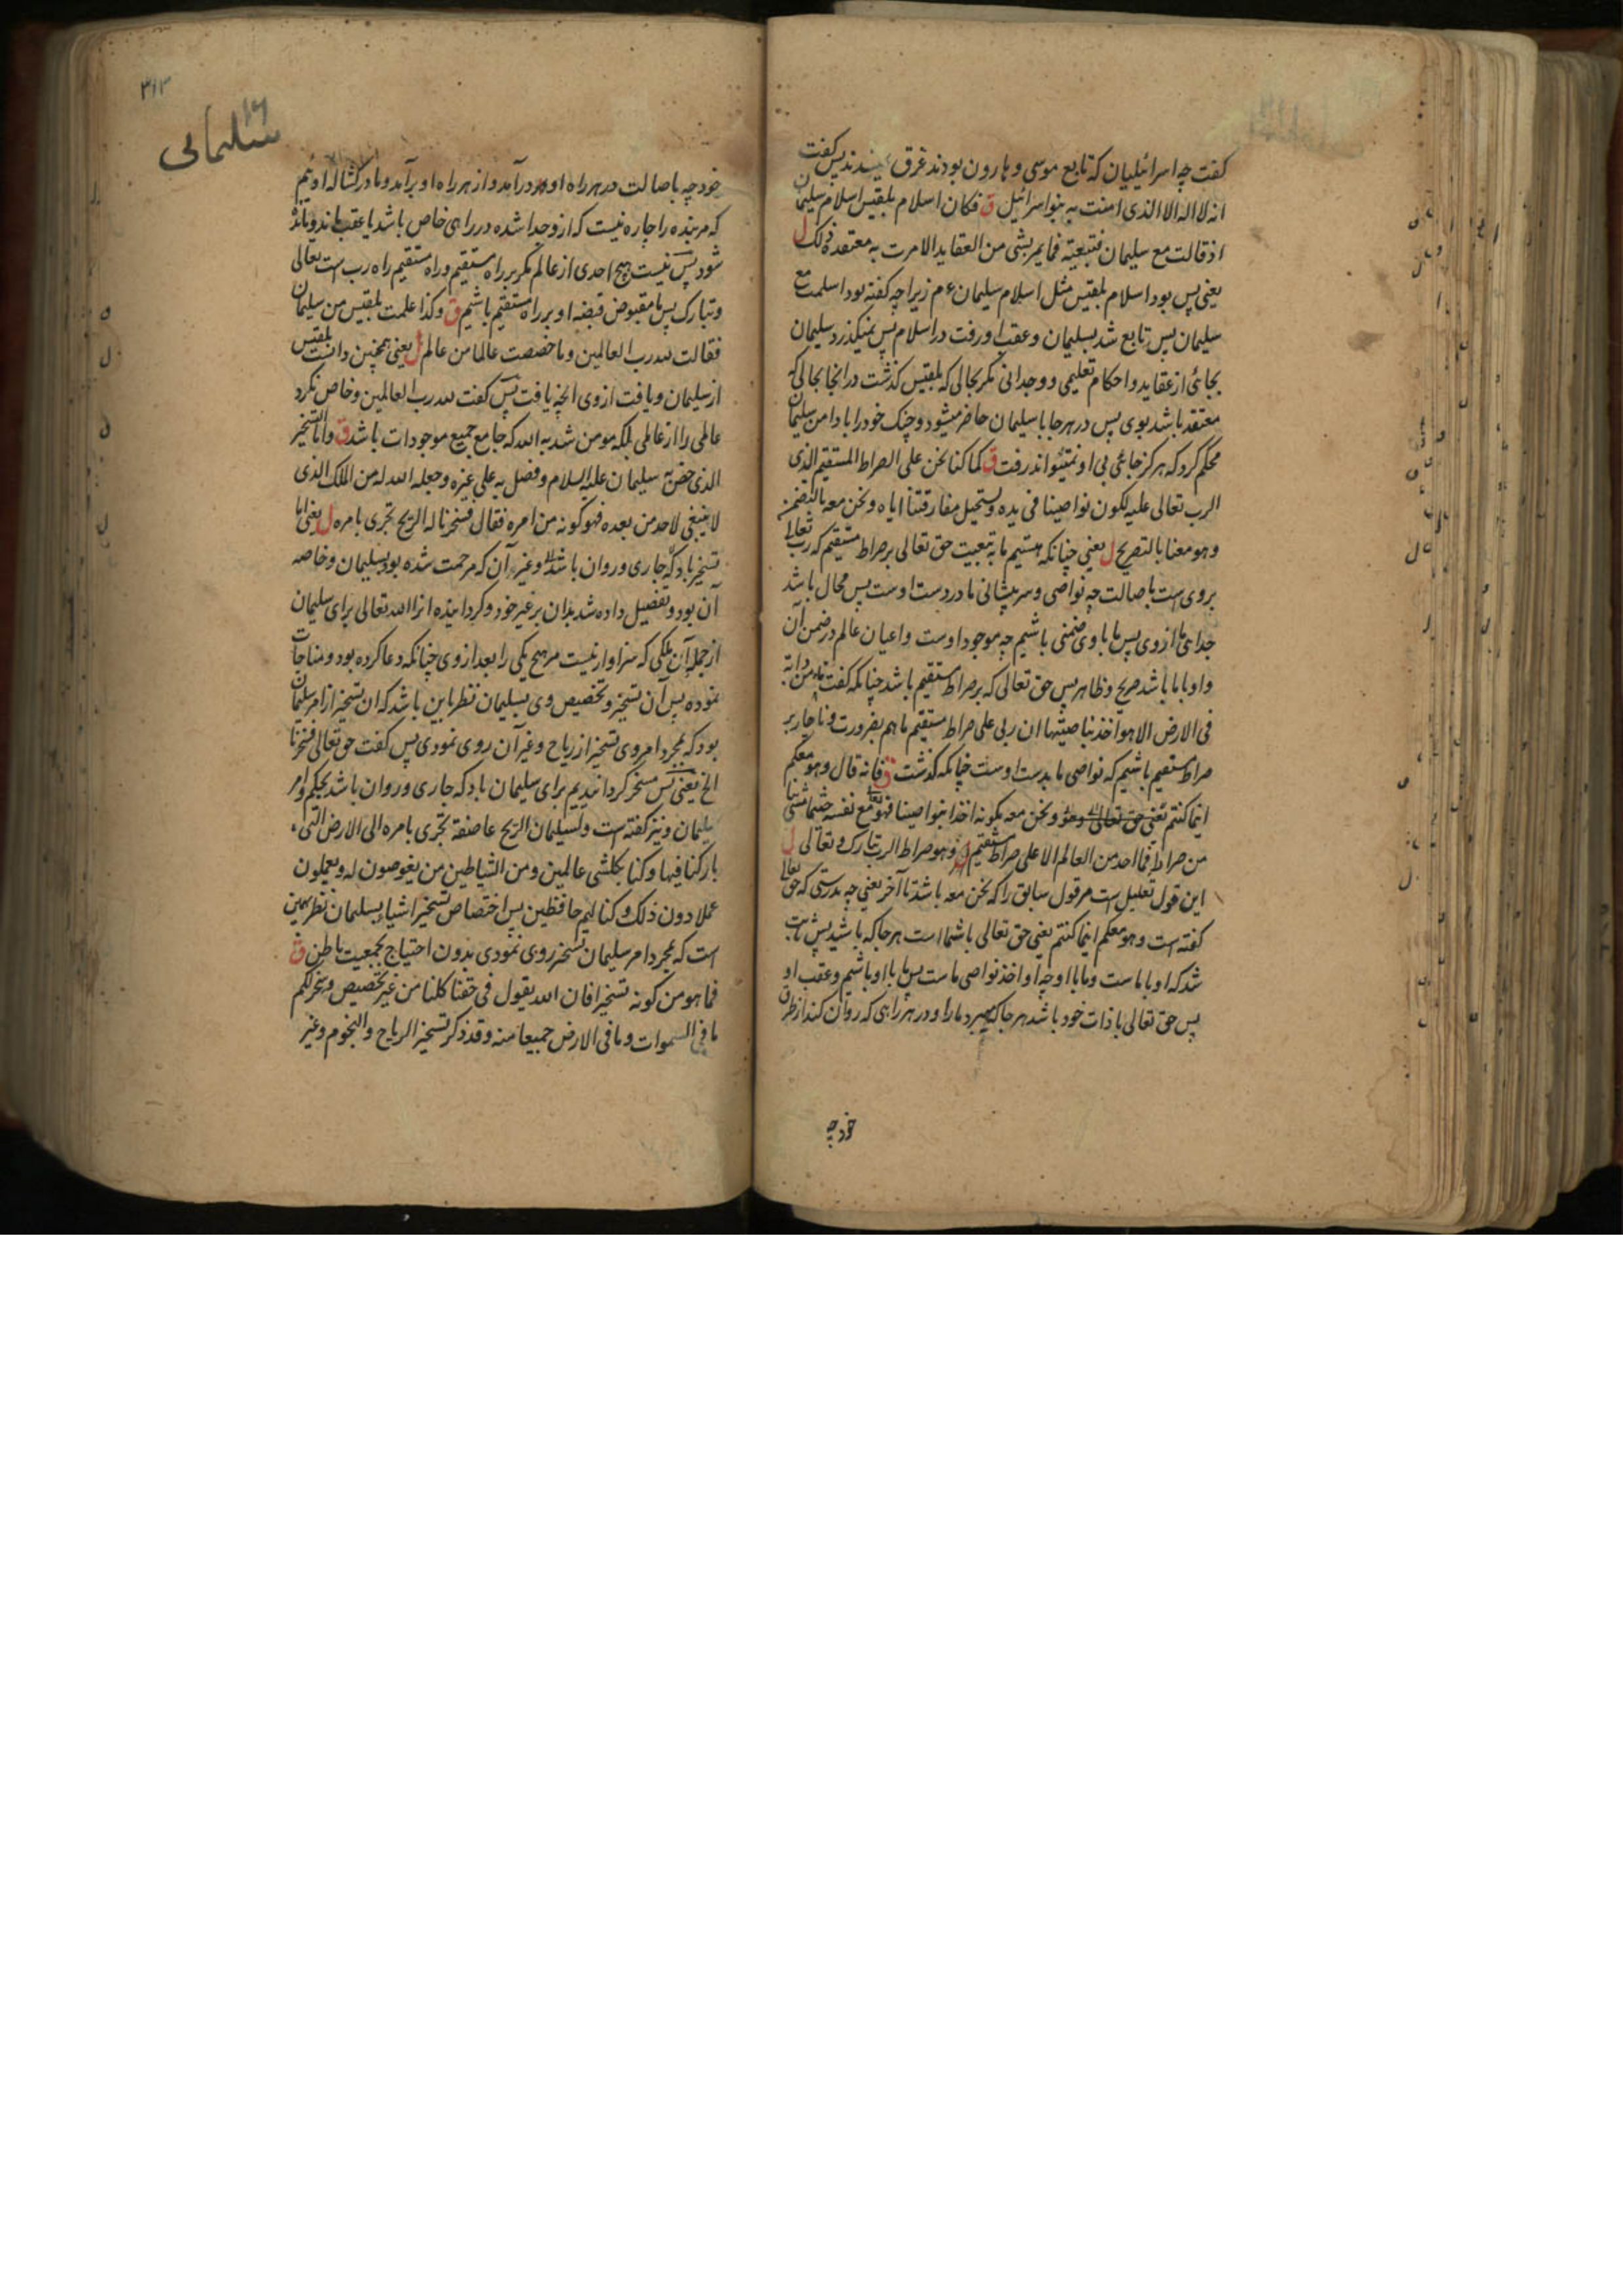 کفت چه اسرائیلیان که تابع موسی و هارون بودند غرق نشدند پس کفت
انه لا اله الا الذی امنت به بنو اسرائیل ق فکان اسلام بلقیس اسلام سلیمان
اذ قالت مع سلیمان فتبعیته فما یمر بشی من العقاید الا مرت به معتقدة ذلک ل
یعنی پس بود اسلام بلقیس مثل اسلام سلیمان ءم زیرا چه کفته بود اسلمت مع
سلیمان پس تابع شد بسلیمان و عقب او رفت در اسلام پس نمیکذرد سلیمان
بجائی از عقاید و احکام تعلیمی و وجدانی مکر بحالی که بلقیس کذشت در انجا بحالی که
معتقد باشد بوی پس در هر جا با سلیمان حاضر میشود و چنک خود را با دامن سلیمان
محکم کرد که هرکز جائی بی او نمیتواند رفت ق کما کنا نحن علی الصراط المستقیم الذی
الرب تعالی علیه لکون نواصینا فی یده و یستحیل مفارقتنا ایاه و نحن معه بالتضمن
و هو معنا بالتصریح ل یعنی چنانکه هستیم ما به تبعیت حق تعالی بر صراط مستقیم که رب تعالی
بر وی است باصالت چه نواصی و سر پیشانی ما در دست اوست پس محال باشد
جدائی ما از وی پس ما با وی ضمنی باشیم چه موجود اوست و اعیان عالم در ضمن آن
و او با ما باشد صریح و ظاهر پس حق تعالی که بر صراط مستقیم باشد چنانکه کفت ما من دابة
فی الارض الا هو اخذ بناصیتها ان ربی علی صراط مستقیم ما هم بضرورت و ناچار بر
صراط مستقیم باشیم که نواصی ما بدست اوست چنانکه کذشت ق فانه قال و هو معکم
اینما کنتم و نحن معه بکونه اخذا بنواصینا فهو تعالی مع نفسه حیثما مشی بنا
من صراط فما احد من العالم الا علی صراط مستقیم و هو صراط الرب تبارک و تعالی ل
این قول تعلیل است مر قول سابق را که نحن معه باشد تا آخر یعنی چه بدرستی که حق تعالی
کفته است و هو معکم اینما کنتم یعنی حق تعالی با شما است هر جا که باشید پس ثابت
شد که او با ما ست و ما با او چه او اخذ نواصی ما ست پس ما با او باشیم و عقب او
پس حق تعالی با ذات خود باشد هر جا که میبرد ما را و در هر راهی که روان کند از طرق
خود چه
۳۱۳
سلیمانی
خود چه باصالت در هر راه او درآمد و از هر راه او برآمد و ما در کشاله اوئیم
که مر بنده را چاره نیست که از و جدا شده در راهی خاص باشد یا عقب ماند و مانده
شود پس نیست هیچ احدی از عالم مکر بر راه مستقیم و راه مستقیم راه رب است تعالی
و تبارک پس ما مقبوض قبضه او بر راه مستقیم باشیم ق و کذا علمت بلقیس من سلیمان
فقالت لله رب العالمین و ما خصصت عالما من عالم ل یعنی همچنین دانست بلقیس
از سلیمان و یافت از وی انچه یافت پس کفت لله رب العالمین و خاص نکرد
عالمی را از عالمی بلکه مومن شد به الله که جامع جمیع موجودات باشد ق و اما التسخیر
الذی خص به سلیمان علیه السلام و فضل به علی غیره و جعله الله له من الملک الذی
لا ینبغی لاحد من بعده فهو کونه من امره فقال فسخرنا له الریح تجری بامره ل یعنی اما
تسخیر باد که جاری و روان باشد و غیر آن که مرحمت شده بود بسلیمان و خاصه
آن بود و تفضیل داده شد بدان بر غیر خود و کردانیده انرا الله تعالی برای سلیمان
از جمله آن ملکی که سزاوار نیست مر هیچ یکی را بعد از وی چنانکه دعا کرده بود و مناجات
نموده پس آن تسخیر و تخصیص وی بسلیمان نظر باین باشد که ان تسخیر از امر سلیمان
بود که بمجرد امر وی تسخیر از ریاح و غیر آن روی نمودی پس کفت حق تعالی فسخرنا
الخ یعنی پس مسخر کردانیدیم برای سلیمان باد که جاری و روان باشد بحکم و امر
سلیمان و نیز کفته است و لسلیمان الریح عاصفة تجری بامره الی الارض التی
بارکنا فیها و کنا بکل شی عالمین و من الشیاطین من یغوصون له و یعملون
عملا دون ذلک و کنا لهم حافظین پس اختصاص تسخیر اشیا بسلیمان نظر بهمین
است که بمجرد امر سلیمان تسخیر روی نمودی بدون احتیاج بجمعیت باطن ق
فما هو من کونه تسخیرا فان الله یقول فی حقنا کلنا من غیر تخصیص و سخر لکم
ما فی السموات و ما فی الارض جمیعا منه و قد ذکر تسخیر الریاح و النجوم و غیر